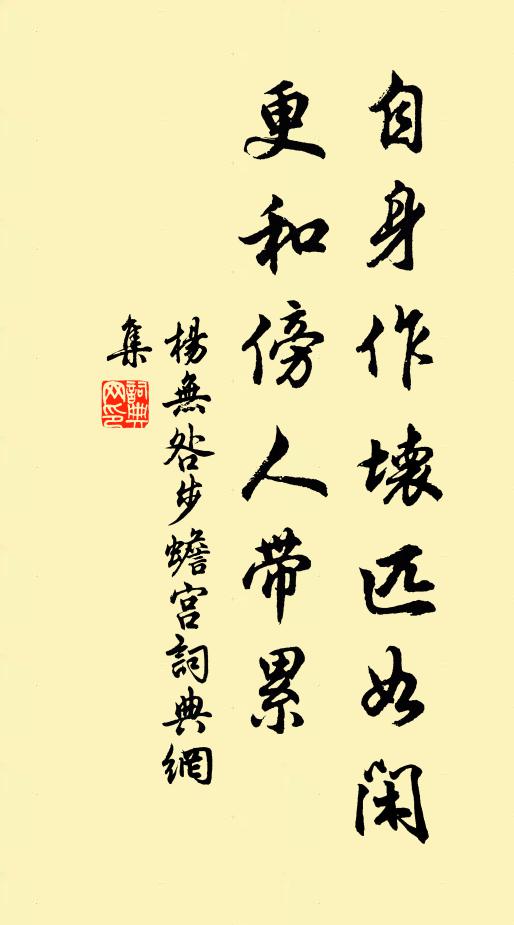 自身作壞匹如閑
更和傍人带累
楊無咎步蟾宫詞典網
集
詞典網印